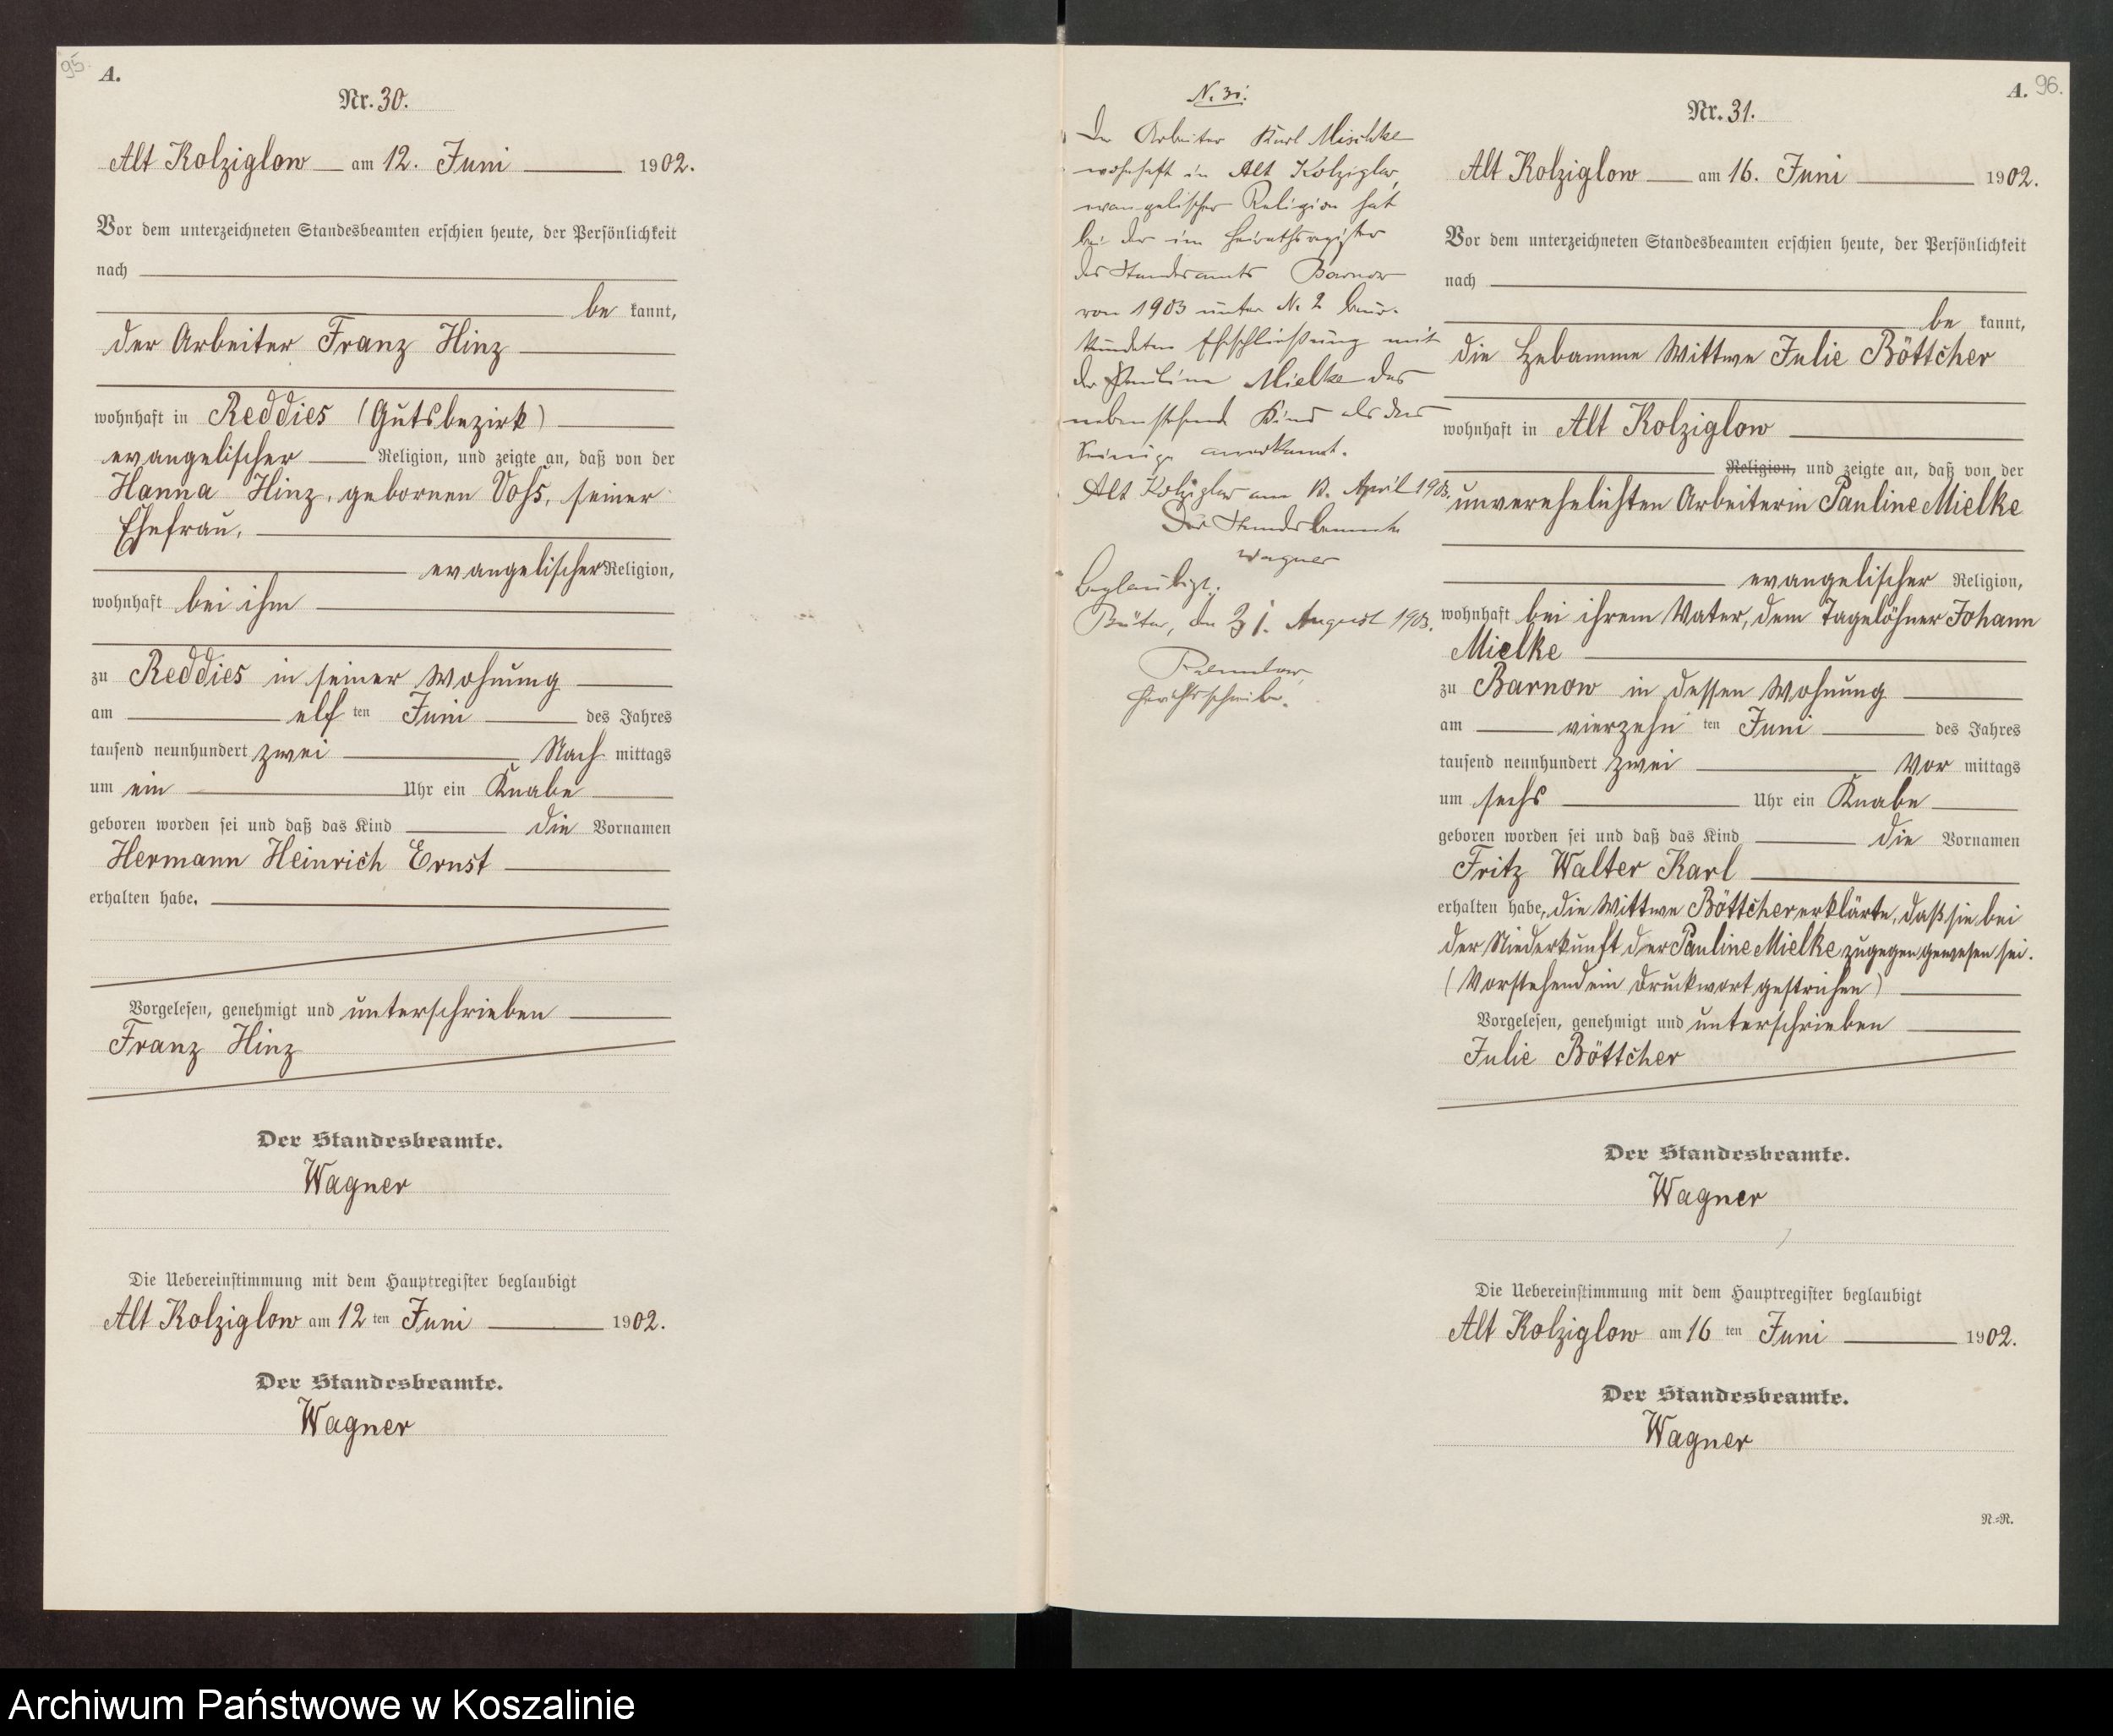 95.
A.
Nr. 30.
Alt Kolziglow am 12. Juni 1902.
Vor dem unterzeichneten Standesbeamten erschien heute, der Persönlichkeit
nach
be kannt,
der Arbeiter Franz Hinz
wohnhaft in Reddies (Gutsbezirk)
evangelischer Religion, und zeigte an, daß von der
Hanna Hinz, gebornen Voss, seiner
Ehefrau,
evangelischer Religion,
wohnhaft bei ihm
zu Reddies in seiner Wohnung
am elf ten Juni des Jahres
tausend neunhundert zwei Nach mittags
um ein Uhr ein Knabe
geboren worden sei und daß das Kind die Vornamen
Hermann Heinrich Ernst
erhalten habe.
Vorgelesen, genehmigt und unterschrieben
Franz Hinz
Der Standesbeamte.
Wagner
Die Uebereinstimmung mit dem Hauptregister beglaubigt
Alt Kolziglow am 12 ten Juni 1902.
Der Standesbeamte.
Wagner
N. 31.
Der Arbeiter Karl Mischke
wohnhaft in Alt Kolziglow,
evangelischer Religion hat
bei der im Heirathsregister
des Standesamts Barnow
von 1903 unter N. 2 beur-
kundeten Eheschließung mit
der Pauline Mielke das
nebenstehende Kind als das
Seinige anerkannt.
Alt Kolziglow am 13. April 1903.
Der Standesbeamte
Wagner
Beglaubigt.
Bütow, den 31. August 1903.
Gerichtsschreiber.
A. 96.
Nr. 31.
Alt Kolziglow am 16. Juni 1902.
Vor dem unterzeichneten Standesbeamten erschien heute, der Persönlichkeit
nach
be kannt,
die Hebamme Wittwe Julie Böttcher
wohnhaft in Alt Kolziglow
Religion, und zeigte an, daß von der
unverehelichten Arbeiterin Pauline Mielke
evangelischer Religion,
wohnhaft bei ihrem Vater, dem Tagelöhner Johann
Mielke
zu Barnow in dessen Wohnung
am vierzehn ten Juni des Jahres
tausend neunhundert zwei Vor mittags
um sechs Uhr ein Knabe
geboren worden sei und daß das Kind die Vornamen
Fritz Walter Karl
erhalten habe, die Wittwe Böttcher erklärte, daß sie bei
der Niederkunft der Pauline Mielke zugegen gewesen sei.
(Vorstehend ein Druckwort gestrichen)
Vorgelesen, genehmigt und unterschrieben
Julie Böttcher
Der Standesbeamte.
Wagner
Die Uebereinstimmung mit dem Hauptregister beglaubigt
Alt Kolziglow am 16 ten Juni 1902.
Der Standesbeamte.
Wagner
N.=R.
Archiwum Państwowe w Koszalinie